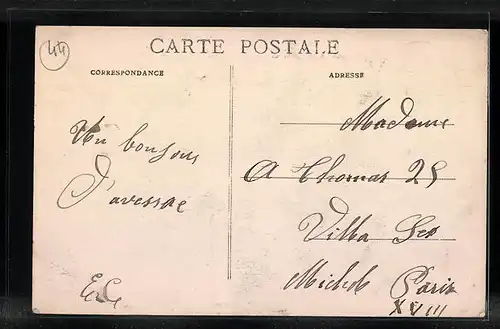 44
CARTE POSTALE
CORRESPONDANCE
ADRESSE
Un bonjour
d'avessac
Madame
A Thomas 25
Villa St
Michel Paris
XVIII